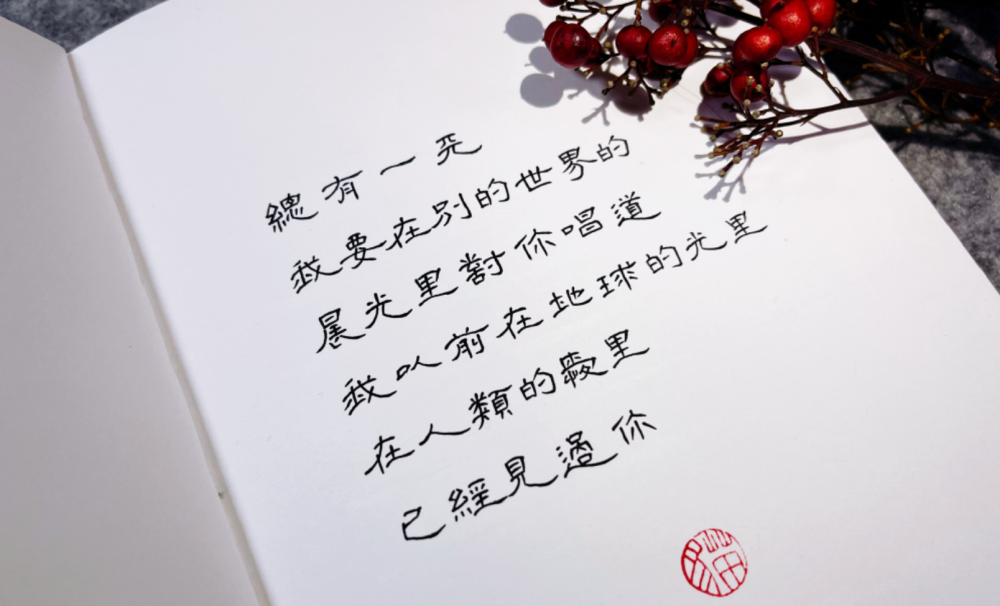 總有一天
我要在別的世界的
晨光里對你唱道
我以前在地球的光里
在人類的愛里
已經見過你
福